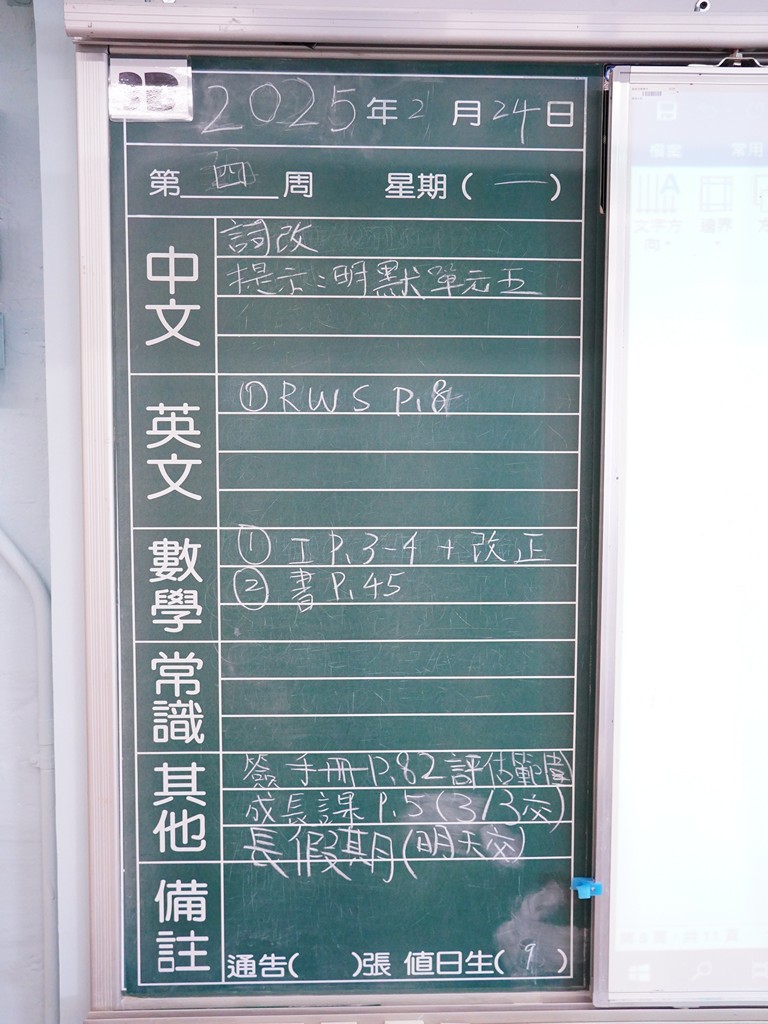 2025年2月24日
第四周 星期(一)
中文
詞改
提示:明默單元五
英文
① RWS P.8
數學
① 工 P.3-4 + 改正
② 書 P.45
常識
其他
簽 手冊 P.82 評估範圍
成長課 P.5 (3/3交)
長假期 (明天交)
備註
通告( )張 值日生( 9 )